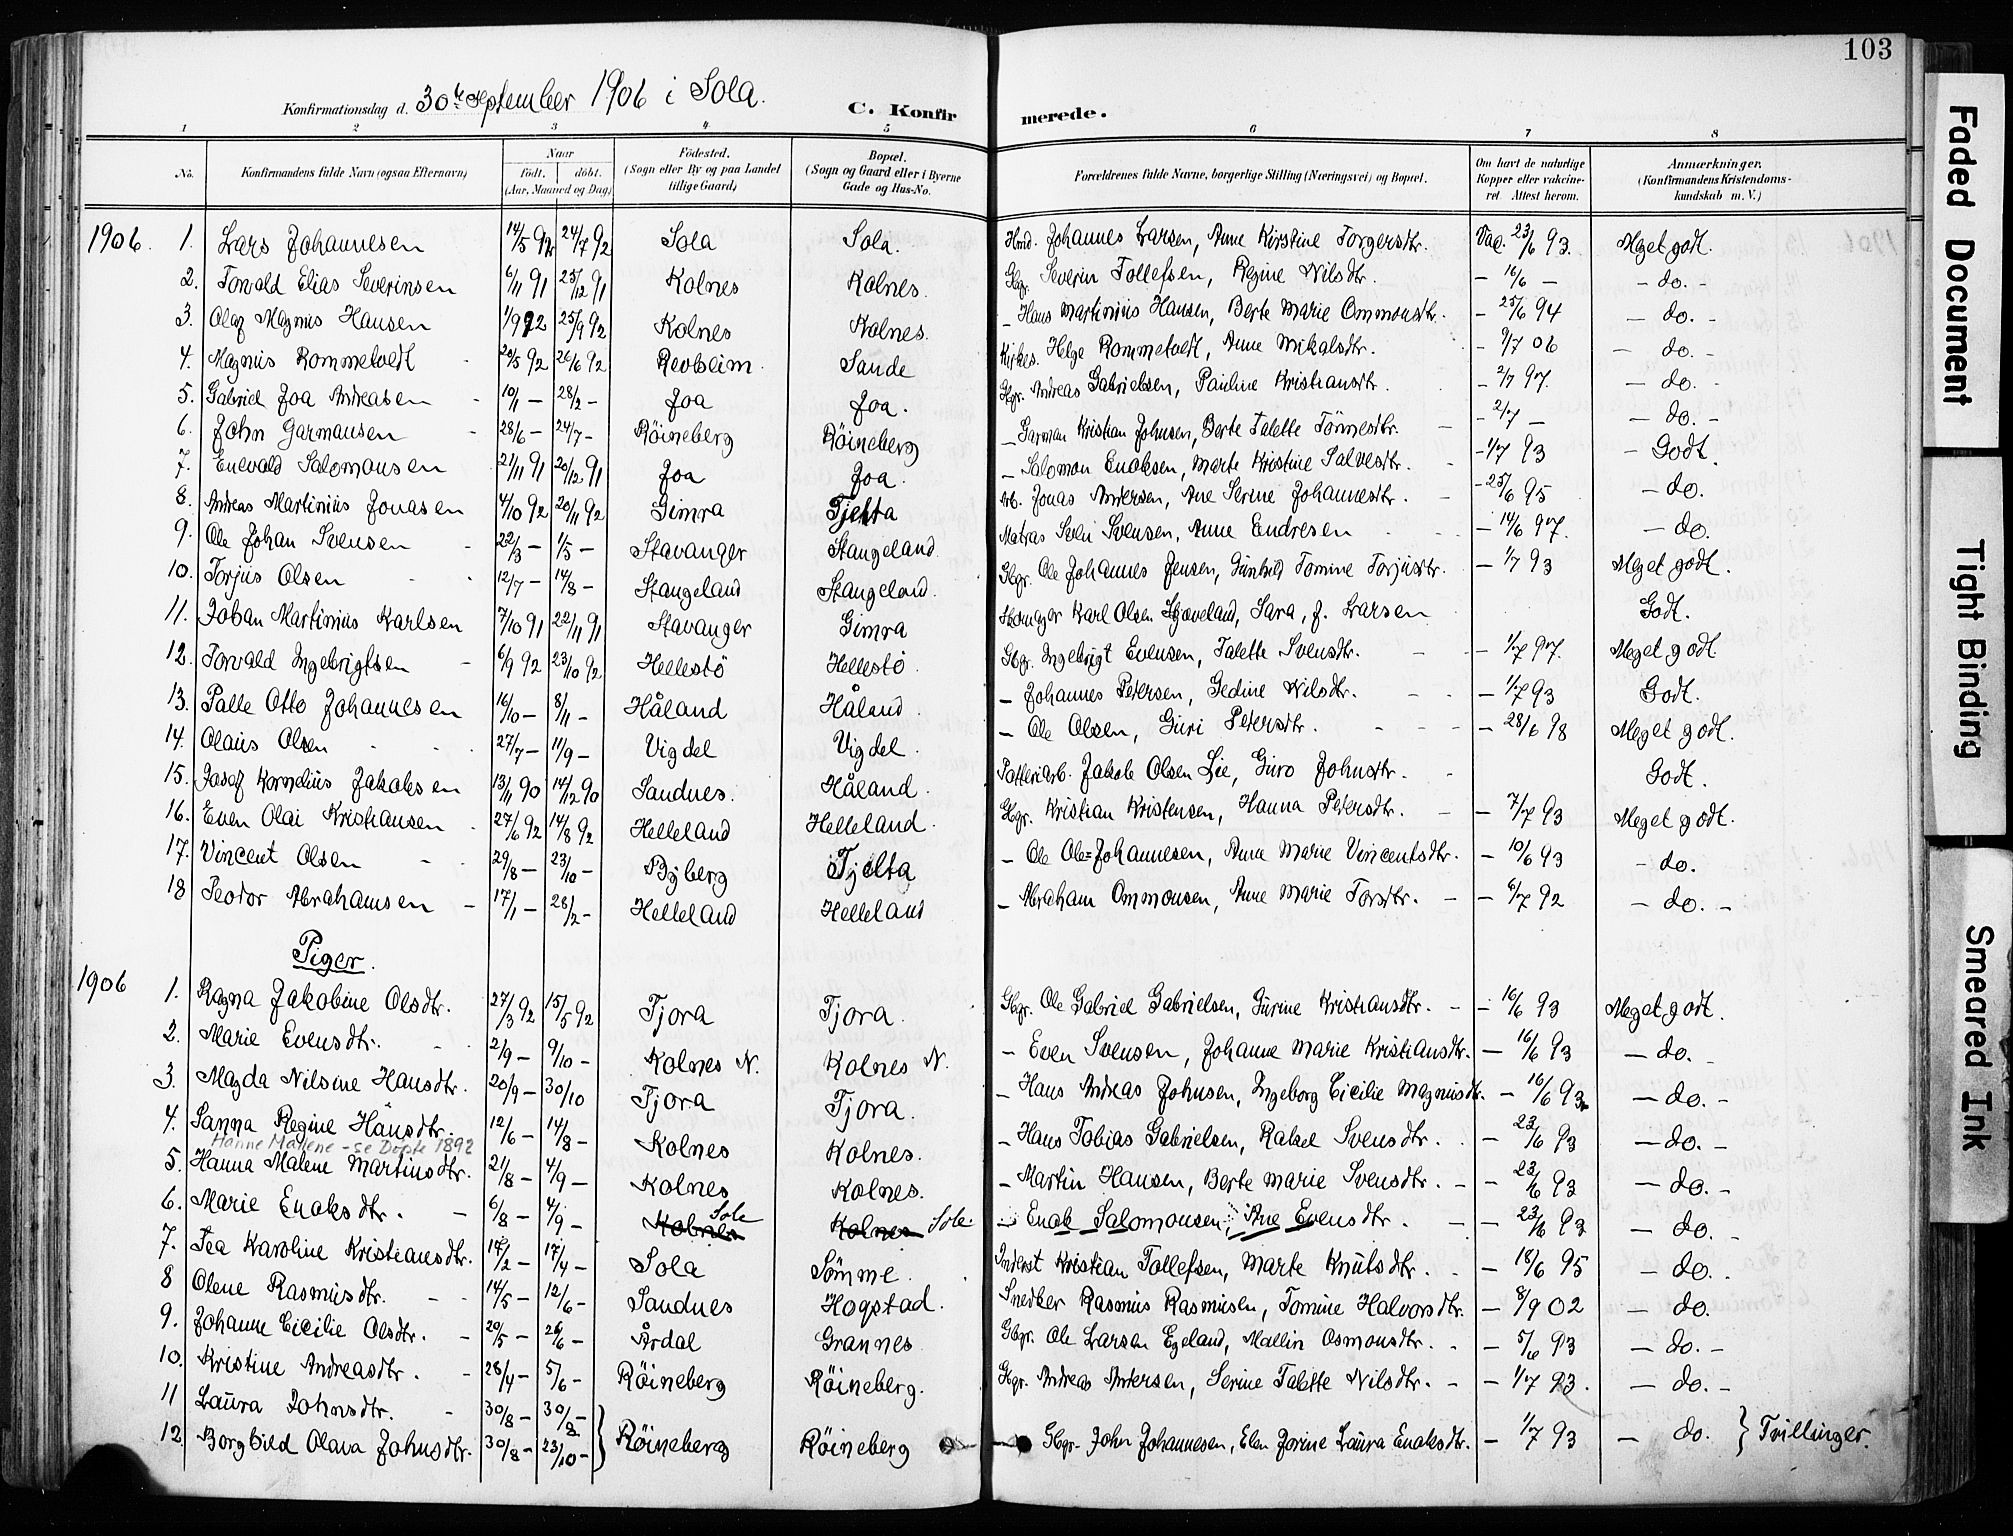 103
Konfirmationsdag d. 30te September 1906 i Sola.
C. Konfirmerede.
1 2 3 4 5 6 7 8
No. Konfirmandens fulde Navn (ogsaa Efternavn) Naar født. døbt. (Aar, Maaned og Dag) Fødested. (Sogn eller By og paa Landet tillige Gaard) Bopæl. (Sogn og Gaard eller i Byerne Gade og Hus-No. Forældrenes fulde Navne, borgerlige Stilling (Næringsvei) og Bopæl. Om havt de naturlige Kopper eller vakcineret. Attest herom. Anmærkninger. (Konfirmandens Kristendomskundskab m. V.)
1906. 1. Lars Johannesen 14/5 92 24/7 92 Sola Sola. Hmd. Johannes Larsen, Anne Kirstine Torgersdtr. Vac. 23/6 93. Meget godt.
2. Torvald Elias Severinsen 6/11 91 25/12 91 Kolnes Kolnes. Gbgr. Severin Tollefsen, Regine Nilsdtr. - 16/6 - - do. -
3. Olaf Magnus Hansen 1/9 92 25/9 92 Kolnes Kolnes. - Hans Martinius Hansen, Berte Marie Ommonsdtr. - 25/6 94 - do. -
4. Magnus Rommetvedt 20/5 92 26/6 92 Revheim Sande Kirkes. Helge Rommetvedt, Anne Mikalsdtr. - 9/7 06 - do. -
5. Gabriel Joa Andreasen 10/1 - 28/2 - Joa Joa. Gbgr. Andreas Gabrielsen, Pauline Kristiansdtr. - 2/7 97. - do. -
6. John Garmansen 28/6 - 24/7 - Röineberg Röineberg - Garman Kristian Johnsen, Berte Talette Tönnesdtr. - 2/7 - - do. -
7. Enevald Salomonsen 21/11 91 20/12 91 Joa Joa. - Salomon Enoksen, Marte Kristine Salvesdtr. - 1/7 93 - Godt.
8. Andreas Martinius Jonasen 4/10 92 20/11 92 Gimra Tjelta Arb. Jonas Andersen, Ane Serine Johannesdtr. - 25/6 95 - do.
9. Ole Johan Svensen 22/3 - 1/5 - Stavanger Stangeland. Matros Svein Svensen, Anne Endresen - 14/6 97. - do.
10. Torjus Olsen 12/7 - 14/8 - Stangeland Stangeland. Gbgr. Ole Johannes Jensen, Gunhild Tomine Torjusdtr. - 1/7 93 Meget godt.
11. Johan Martinius Karlsen 7/10 91 22/11 91 Stavanger Gimra Skomager Karl Olsen Skjæveland, Sara, f. Larsen Godt.
12. Torvald Ingebrigtsen 6/9 92 23/10 92 Hellestö Hellestö Gbgr. Ingebrigt Evensen, Talette Svensdtr. - 1/7 97. Meget godt
13. Palle Otto Johannesen 16/10 - 8/11 - Håland Håland. - Johannes Petersen, Gedine Nilsdtr. - 1/7 93 Godt.
14. Olaus Olsen 27/7 - 11/9 - Vigdel Vigdel. - Ole Olsen, Guri Petersdtr. - 28/6 98 Meget godt.
15. Josef Kornelius Jakobsen 13/11 90 14/12 90 Sandnes. Håland. Potteriarb. Jakob Olsen Lie, Guro Johnsdtr. - Godt.
16. Even Olai Kristiansen 27/6 92 14/8 92 Helleland Helleland. Gbgr. Kristian Kristensen, Hanna Petersdtr. - 7/7 93 Meget godt.
17. Vincent Olsen 29/8 - 23/10 - Byberg Tjelta - Ole Ole=Johannesen, Anna Marie Vincentsdtr. - 10/6 93 - do.
18 Peotor Abrahamsen - 17/1 - 28/2 - Helleland Helleland - Abraham Ommonsen, Anne Marie Torsdtr. - - 6/7 92 - do. -
Piger.
1906 1. Ragna Jakobine Olsdtr. 27/3 92 15/5 92 Tjora Tjora. Gbgr. Ole Gabriel Gabrielsen, Gurine Kristiansdtr. - - 16/6 93 Meget godt.
2. Marie Evensdtr. 2/9 - 9/10 - Kolnes N. Kolnes N. - Even Svensen, Johanne Marie Kristiansdtr. - 16/6 93 - do. -
3. Magda Nilsine Hansdtr. 20/9 - 30/10 Tjora Tjora. - Hans Andreas Johnsen, Ingeborg Cicilie Magnusdtr. - 16/6 93 - do. -
4. Sanna Regine Hansdtr. 12/6 - 14/8 - Kolnes Kolnes. - Hans Tobias Gabrielsen, Rakel Svensdtr. - 23/6 93 - do. -
Hanne Malene - se Døpte 1892
5. Hanna Malene Martinsdtr. 21/8 - 4/9 - Kolnes Kolnes. - Martin Hansen, Berte Marie Svensdtr. - - 23/6 93 - do. -
6. Marie Enoksdtr. - 6/8 - 4/9 - Kolnes Sole Kolnes Sole - Enok Salomonsen, Ane Evensdtr. - - 23/6 93 - do. -
7. Tea Karoline Kristiansdtr. 17/2 - 17/4 - Sola Sömme. Inderst Kristian Tollefsen, Marte Knutsdtr. - 18/6 95 - do. -
8 Olene Rasmusdtr. - 14/5 - 12/6 - Sandnes Hogstad. Snedker Rasmus Rasmusen, Tomine Halvorsdtr. - 8/9 02 - do.
9. Johanne Cicilie Olsdtr. - 20/5 - 26/6 - Årdal Grannes Gbgr. Ole Larsen Egeland, Mallin Osmonsdtr. - 5/6 93 - do. -
10. Kristine Andreasdtr. - 28/4 - 5/6 - Röineberg Röineberg. Gbgr. Andreas Andersen, Serine Talette Nilsdtr. - - 1/7 93. - do. -
11 Laura Johnsdtr. - 30/8 - 30/8 -
12. Borghild Olava Johnsdtr. 30/8 - 23/10 - } Röineberg Röineberg Gbgr. John Johannesen, Elen Jorine Laura Enoksdtr. - 1/7 93 - do. } Tvillinger.
Faded Document
Tight Binding
Smeared Ink